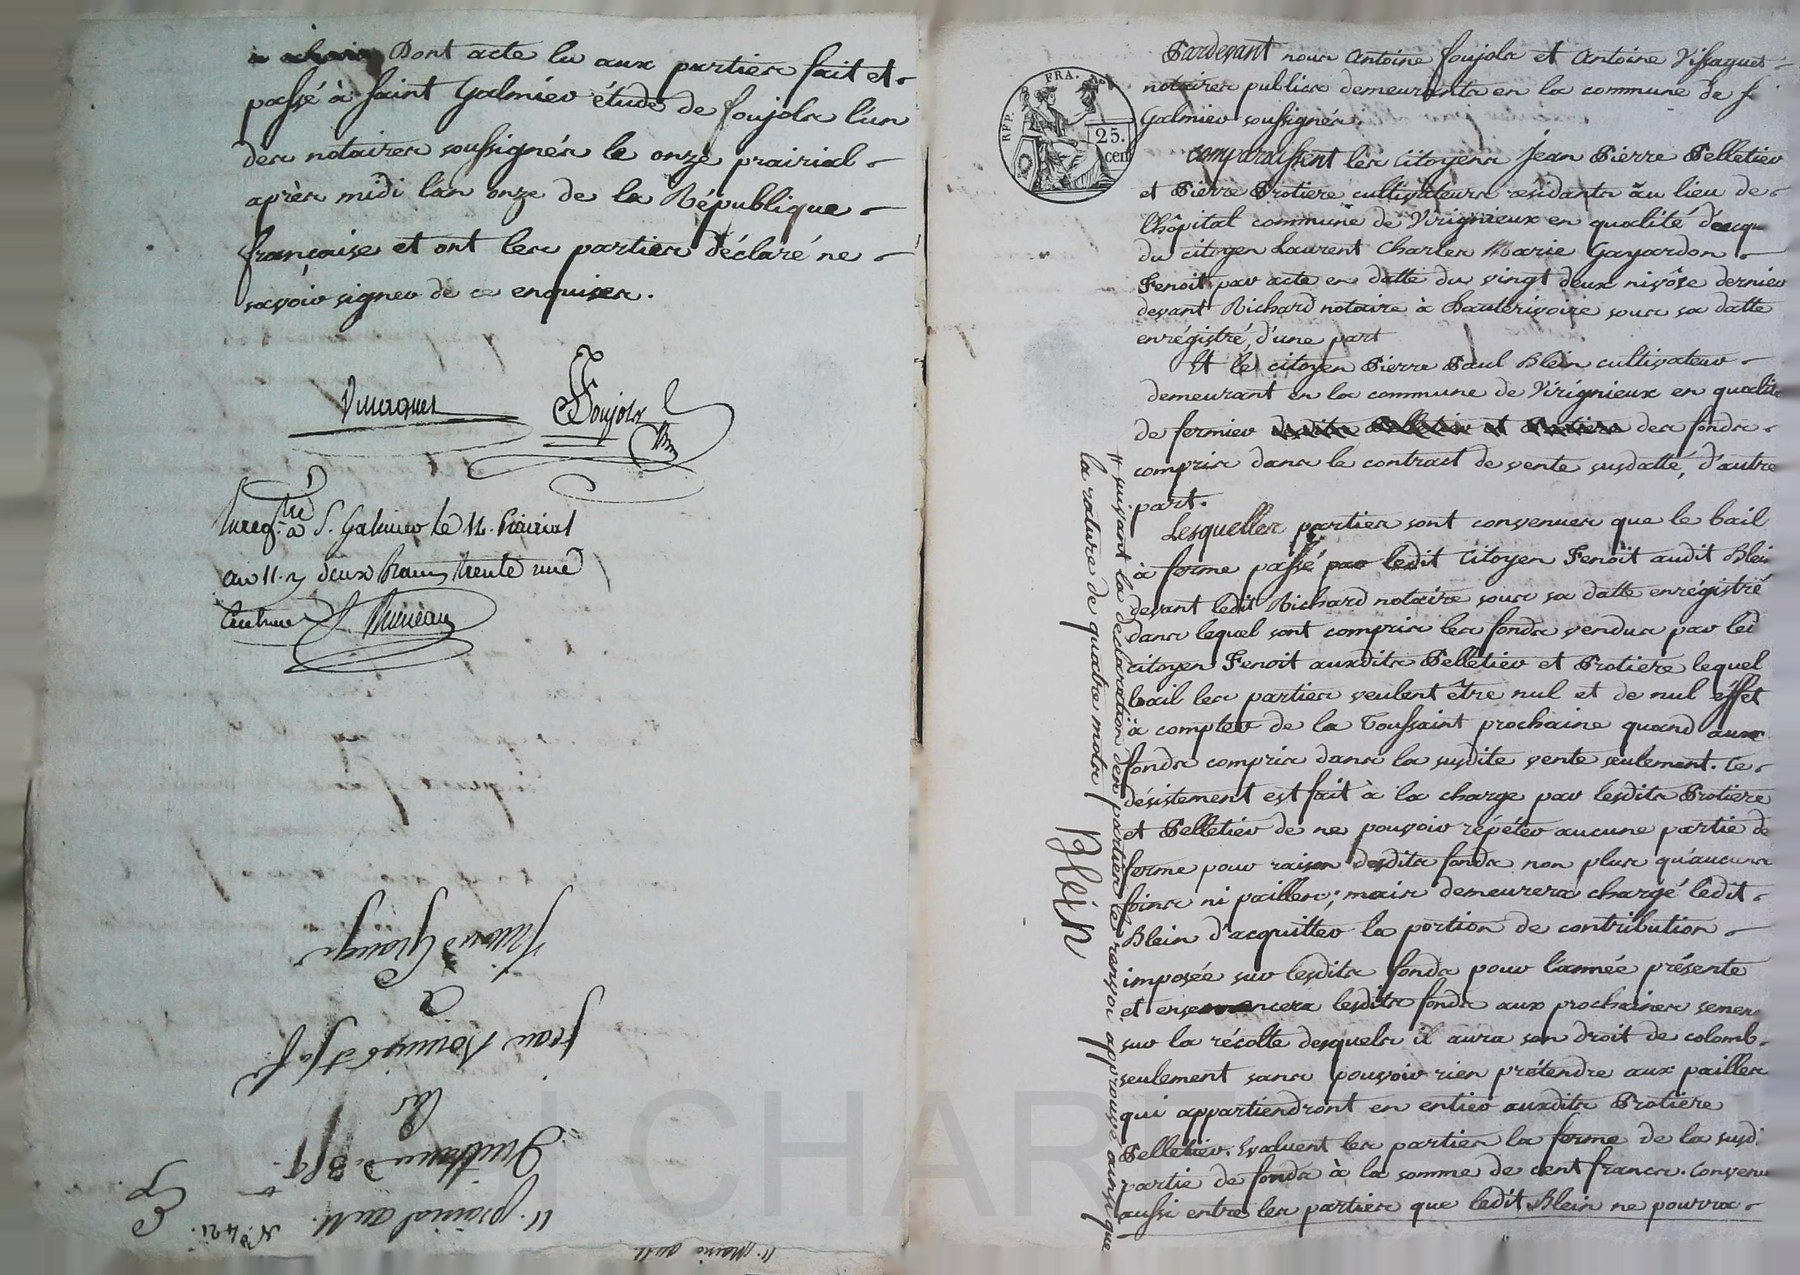 Dont acte lu aux parties fait et
passé à Saint Galmier étude de foujols l'un
des notaires soussignés le onze prairial
après midi l'an onze de la République
française et ont les parties déclaré ne
savoir signer de ce enquises.
Vissaguet Foujols
Enreg.tré à S. Galmier le 12. Prairial
an 11. deux francs trente un
centimes
Jean
a
N.o 421.
11. prairial an 11.
Pardevant nous Antoine foujols et Antoine Vissaguet
notaires publics demeurants en la commune de S
Galmier soussignés
REP. FRA.
25.
cen
Comparaissent les citoyens Jean Pierre Pelletier
et Pierre Protiere cultivateurs résidants au lieu de
l'hôpital commune de Virignieux en qualité d'acqu
du citoyen Laurent Charles Marie Gayardon
Fenoit par acte en datte du vingt deux nivôse dernier
devant Richard notaire à hauterivoire sous sa datte
enrégistré, d'une part
Et le citoyen Pierre Paul Blein cultivateur
demeurant en la commune de Virignieux en qualité
de fermier desdits Pelletier et Protiere des fonds
compris dans le contract de vente susdatté, d'autre
part.
Lesquelles parties sont convenues que le bail
à ferme passé par ledit Citoyen Fenoit audit Blein
devant ledit Richard notaire sous sa datte enrégistré
dans lequel sont compris les fonds vendus par led
citoyen Fenoit auxdits Pelletier et Protiere lequel
bail les parties veulent être nul et de nul éffet
à compter de la Toussaint prochaine quand aux
fonds compris dans la susdite vente seulement. Ce
désistement est fait à la charge par lesdits Protiere
et Pelletier de ne pouvoir répéter aucune partie de
ferme pour raison desdits fonds non plus qu'aucuns
foins ni pailles; mais demeurera chargé ledit
Blein d'acquitter la portion de contribution
imposée sur lesdits fonds pour l'année présente
et ensemencera lesdits fonds aux prochaines semen
sur la récolte desquels il aura son droit de colomb
seulement sans pouvoir rien prétendre aux pailles
qui appartiendront en entier auxdits Protière
Pelletier. Evaluent les parties la ferme de la susdi
partie de fonds à la somme de cent francs. Convenu
aussi entre les parties que ledit Blein ne pourra
suivant la déclaration des parties le renvoi approuvé ainsi que
la rature de quatre mots
Blein